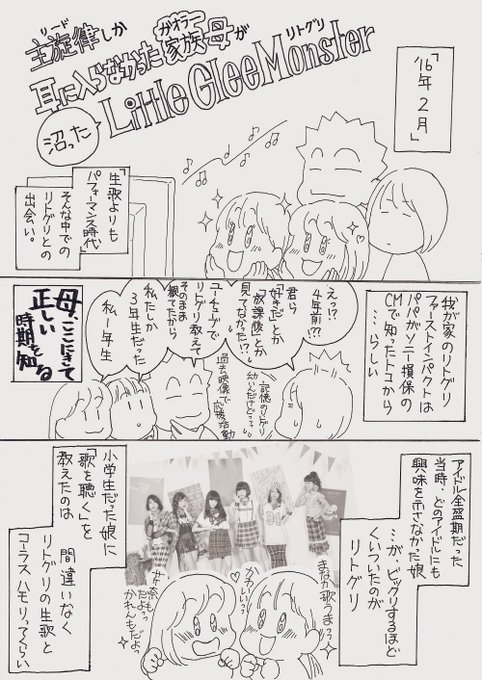 リード
主旋律しか
耳に入らなかった
ガオラー
家族母が
リトグリ
Little Glee Monster
沼った
「'16年2月」
「生歌よりも
パフォーマンス時代」
そんな中での
リトグリとの
出会い。
我が家のリトグリ
ファーストインパクトは
パパがソニー損保の
CMで知ったトコから
…らしい
えっ!?
4年前!??
君ら
「好きだ」とか
「放課後」とか
見てなかった!?
記憶のリトグリ
幼いんだけど…?
ユーチューブで
リトグリ教えて
そのまま
観てたから
過去映像で
応援活動
私たしか
3年生だった
私1年生
母、ここにきて
正しい
時期を知る
アイドル全盛期だった
当時、どのアイドルにも
興味を示さなかった娘
…が、ビックリするほど
くいついたのが
リトグリ
まなか歌うまっ
かわいいっ
かれんもだよ。
小学生だった娘に
「歌を聴く」を
教えたのは
間違いなく
リトグリの生歌と
コーラスハモリってくらい